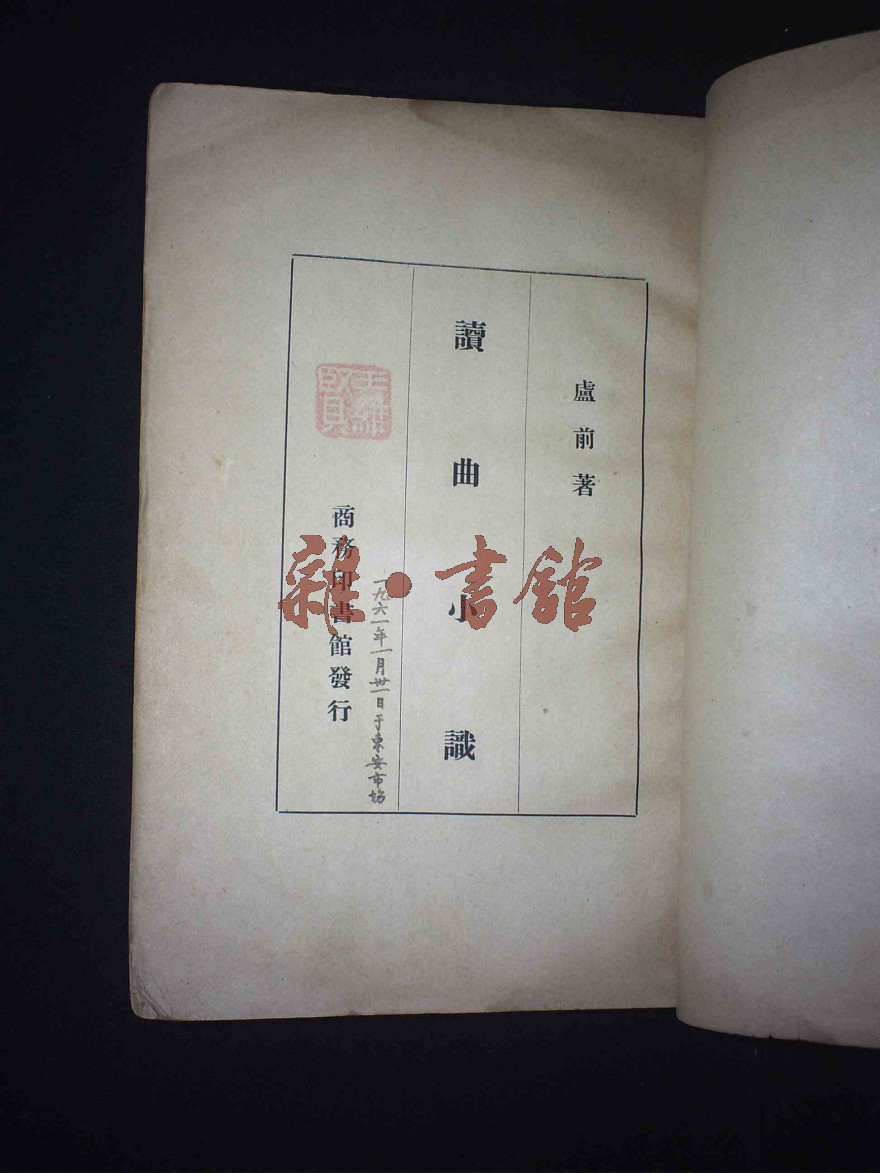 盧前著
讀曲小識
王維賢
商務印書館發行
一九六一年一月卅一日于東安市场
雜·書館